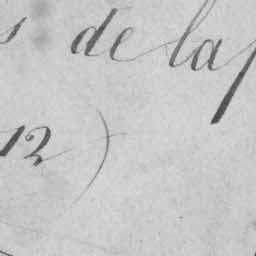 de la
12)